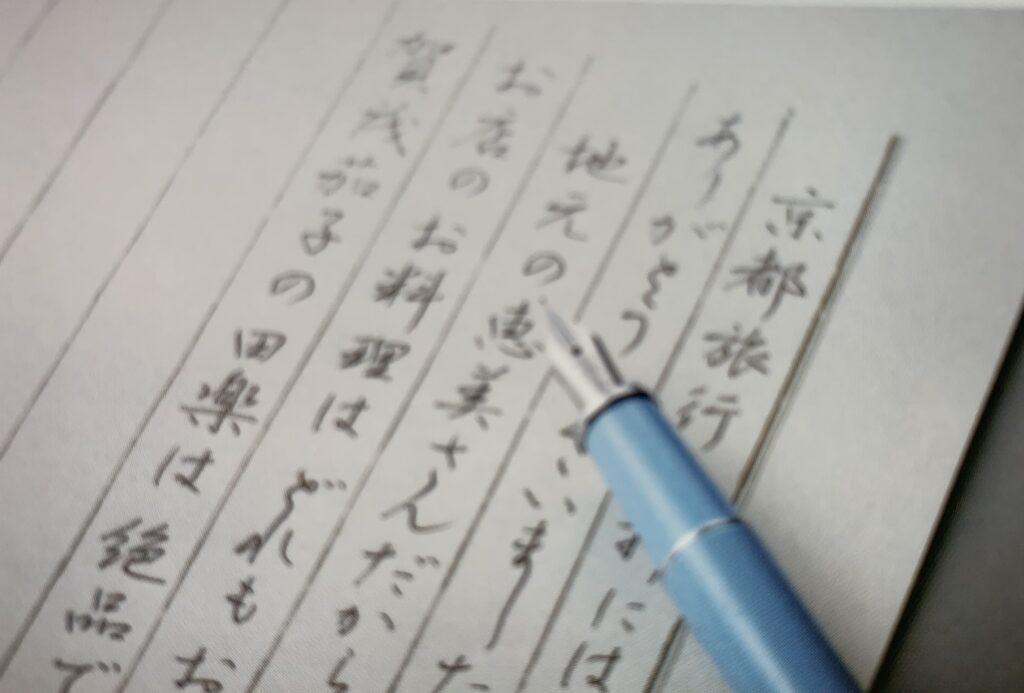 京都旅行には
ありがとういました
地元の恵美さんだから
お店のお料理はどれもお
賀茂茄子の田楽は絶品で